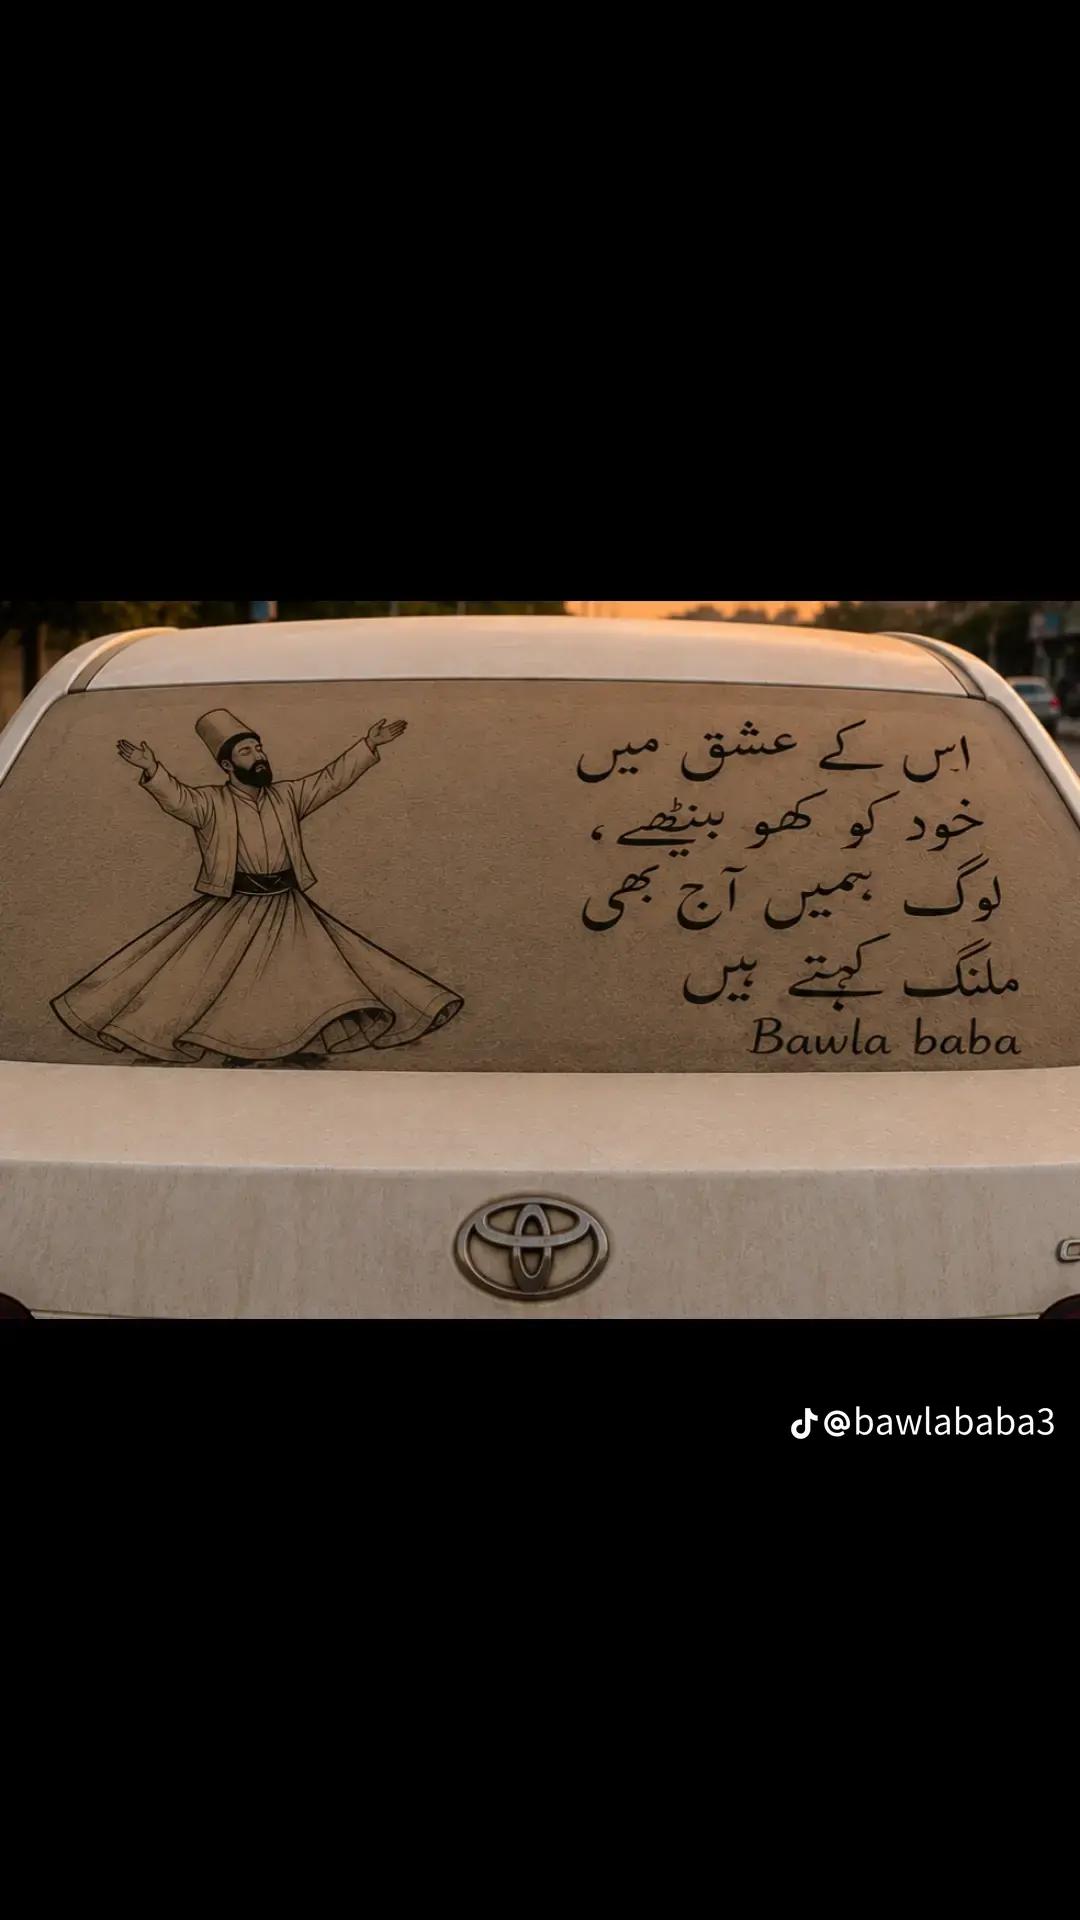 اس کے عشق میں
خود کو کھو بیٹھے،
لوگ ہمیں آج بھی
ملنگ کہتے ہیں
Bawla baba
@bawlababa3